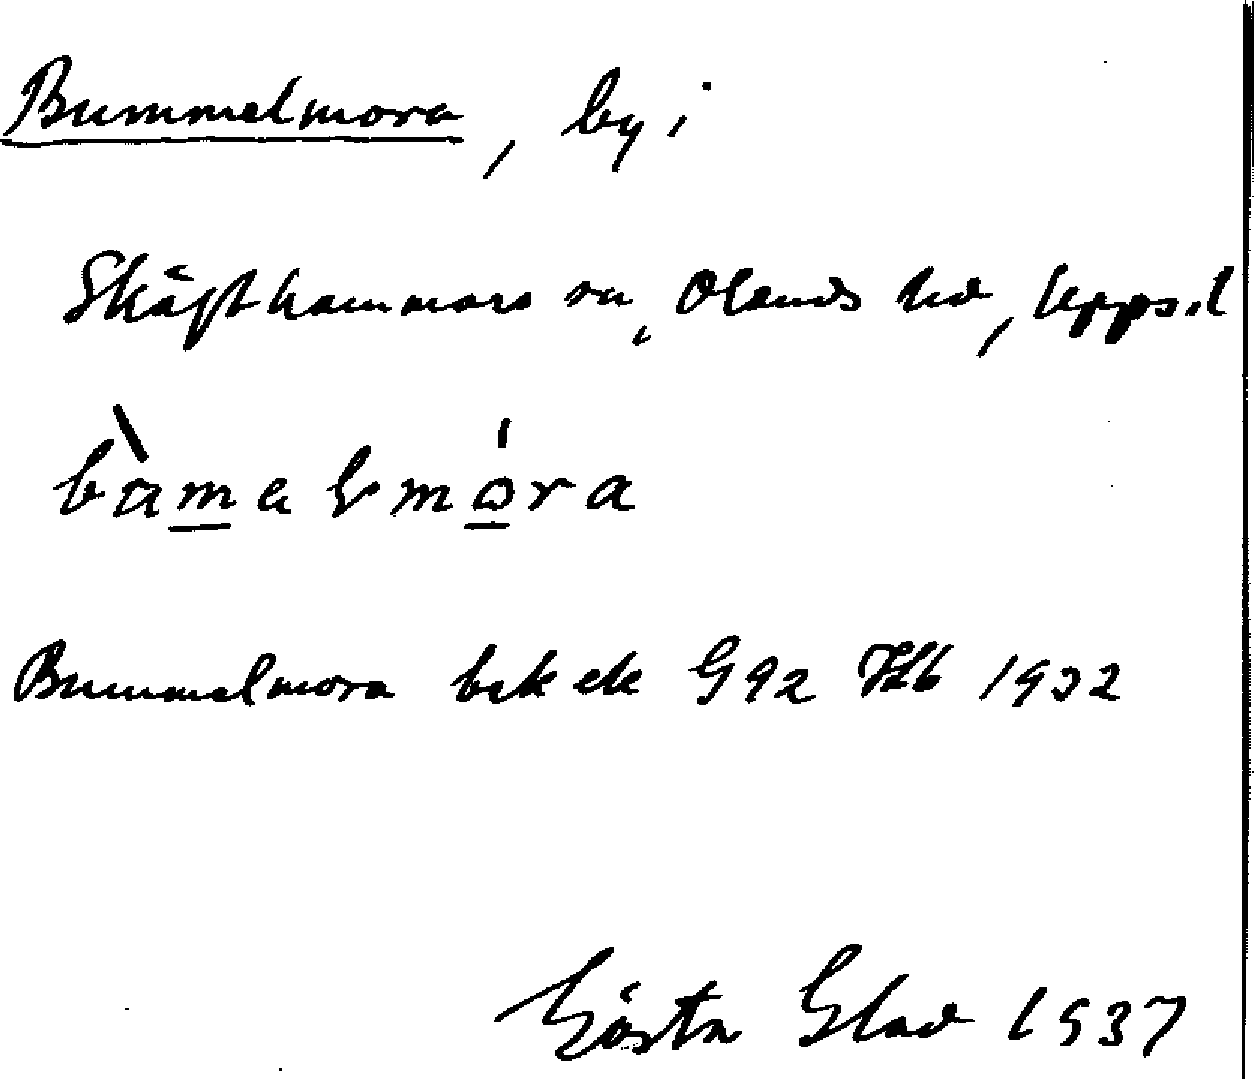 Bummelmora, by i
Skäfthammars sn, Olands hd, Upps.l
bàmalmóra
Bummelmora bek ek G92 Hb 1932
Gösta Glad 1937